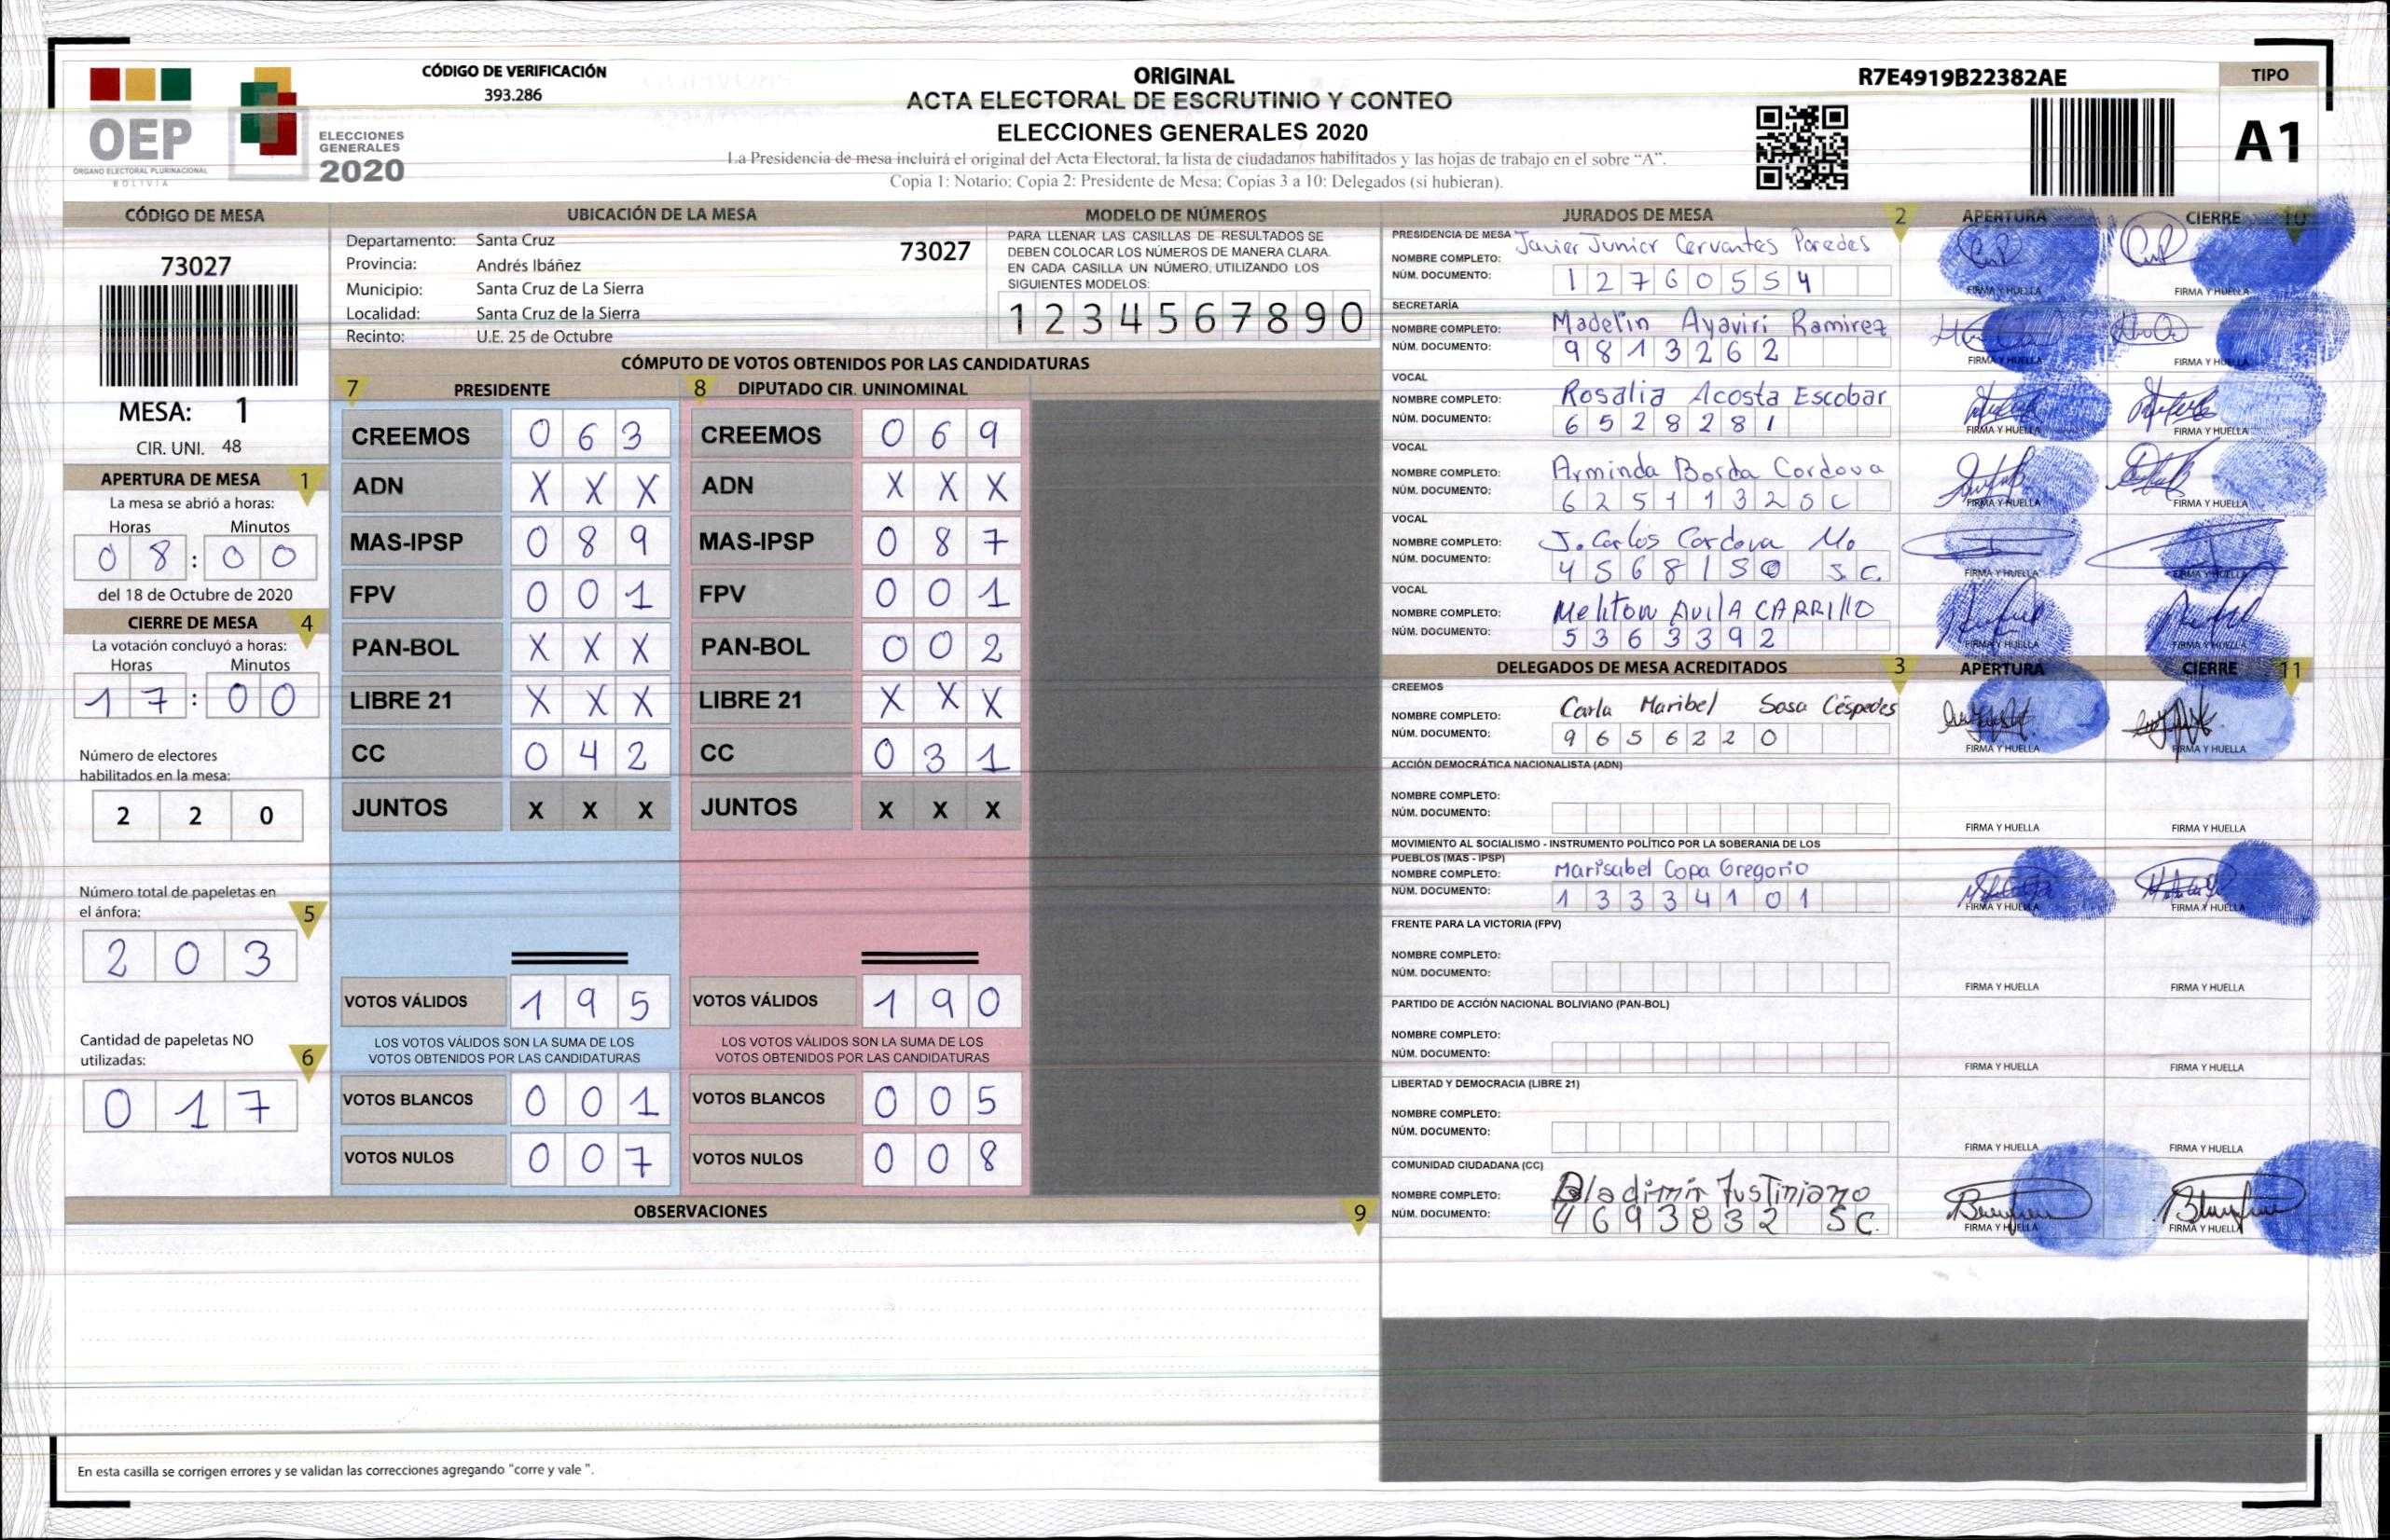 OEP
ÓRGANO ELECTORAL PLURINACIONAL
BOLIVIA
ELECCIONES
GENERALES
2020
CÓDIGO DE VERIFICACIÓN
393.286
ORIGINAL
ACTA ELECTORAL DE ESCRUTINIO Y CONTEO
ELECCIONES GENERALES 2020
La Presidencia de mesa incluirá el original del Acta Electoral, la lista de ciudadanos habilitados y las hojas de trabajo en el sobre "A".
Copia 1: Notario; Copia 2: Presidente de Mesa; Copias 3 a 10: Delegados (si hubieran).
R7E4919B22382AE
TIPO
A1
CÓDIGO DE MESA
73027
MESA: 1
CIR. UNI. 48
APERTURA DE MESA 1
La mesa se abrió a horas:
Horas Minutos
0 8 : 0 0
del 18 de Octubre de 2020
CIERRE DE MESA 4
La votación concluyó a horas:
Horas Minutos
1 7 : 0 0
Número de electores
habilitados en la mesa:
2 2 0
Número total de papeletas en
el ánfora: 5
2 0 3
Cantidad de papeletas NO
utilizadas: 6
0 1 7
UBICACIÓN DE LA MESA
Departamento: Santa Cruz 73027
Provincia: Andrés Ibáñez
Municipio: Santa Cruz de La Sierra
Localidad: Santa Cruz de la Sierra
Recinto: U.E. 25 de Octubre
MODELO DE NÚMEROS
PARA LLENAR LAS CASILLAS DE RESULTADOS SE
DEBEN COLOCAR LOS NÚMEROS DE MANERA CLARA.
EN CADA CASILLA UN NÚMERO, UTILIZANDO LOS
SIGUIENTES MODELOS:
1 2 3 4 5 6 7 8 9 0
CÓMPUTO DE VOTOS OBTENIDOS POR LAS CANDIDATURAS
7 PRESIDENTE 8 DIPUTADO CIR. UNINOMINAL
CREEMOS 0 6 3 CREEMOS 0 6 9
ADN X X X ADN X X X
MAS-IPSP 0 8 9 MAS-IPSP 0 8 7
FPV 0 0 1 FPV 0 0 1
PAN-BOL X X X PAN-BOL 0 0 2
LIBRE 21 X X X LIBRE 21 X X X
CC 0 4 2 CC 0 3 1
JUNTOS X X X JUNTOS X X X
VOTOS VÁLIDOS 1 9 5 VOTOS VÁLIDOS 1 9 0
LOS VOTOS VÁLIDOS SON LA SUMA DE LOS LOS VOTOS VÁLIDOS SON LA SUMA DE LOS
VOTOS OBTENIDOS POR LAS CANDIDATURAS VOTOS OBTENIDOS POR LAS CANDIDATURAS
VOTOS BLANCOS 0 0 1 VOTOS BLANCOS 0 0 5
VOTOS NULOS 0 0 7 VOTOS NULOS 0 0 8
OBSERVACIONES 9
En esta casilla se corrigen errores y se validan las correcciones agregando "corre y vale ".
JURADOS DE MESA 2 APERTURA CIERRE 10
PRESIDENCIA DE MESA
NOMBRE COMPLETO: Javier Junior Cervantes Paredes
NÚM. DOCUMENTO: 1 2 7 6 0 5 5 4
FIRMA Y HUELLA FIRMA Y HUELLA
SECRETARÍA
NOMBRE COMPLETO: Madelin Ayaviri Ramirez
NÚM. DOCUMENTO: 9 8 1 3 2 6 2
FIRMA Y HUELLA FIRMA Y HUELLA
VOCAL
NOMBRE COMPLETO: Rosalia Acosta Escobar
NÚM. DOCUMENTO: 6 5 2 8 2 8 1
FIRMA Y HUELLA FIRMA Y HUELLA
VOCAL
NOMBRE COMPLETO: Arminda Borda Cordova
NÚM. DOCUMENTO: 6 2 5 1 1 3 2 S C
FIRMA Y HUELLA FIRMA Y HUELLA
VOCAL
NOMBRE COMPLETO: J. Carlos Cordova Mo
NÚM. DOCUMENTO: 4 5 6 8 1 5 0 S. C.
FIRMA Y HUELLA FIRMA Y HUELLA
VOCAL
NOMBRE COMPLETO: Meliton AVILA CARRILLO
NÚM. DOCUMENTO: 5 3 6 3 3 9 2
FIRMA Y HUELLA FIRMA Y HUELLA
DELEGADOS DE MESA ACREDITADOS 3 APERTURA CIERRE 11
CREEMOS
NOMBRE COMPLETO: Carla Maribel Sosa Céspedes
NÚM. DOCUMENTO: 9 6 5 6 2 2 0
FIRMA Y HUELLA FIRMA Y HUELLA
ACCIÓN DEMOCRÁTICA NACIONALISTA (ADN)
NOMBRE COMPLETO:
NÚM. DOCUMENTO:
FIRMA Y HUELLA FIRMA Y HUELLA
MOVIMIENTO AL SOCIALISMO - INSTRUMENTO POLÍTICO POR LA SOBERANIA DE LOS
PUEBLOS (MAS - IPSP)
NOMBRE COMPLETO: Marisabel Copa Gregorio
NÚM. DOCUMENTO: 1 3 3 3 4 1 0 1
FIRMA Y HUELLA FIRMA Y HUELLA
FRENTE PARA LA VICTORIA (FPV)
NOMBRE COMPLETO:
NÚM. DOCUMENTO:
FIRMA Y HUELLA FIRMA Y HUELLA
PARTIDO DE ACCIÓN NACIONAL BOLIVIANO (PAN-BOL)
NOMBRE COMPLETO:
NÚM. DOCUMENTO:
FIRMA Y HUELLA FIRMA Y HUELLA
LIBERTAD Y DEMOCRACIA (LIBRE 21)
NOMBRE COMPLETO:
NÚM. DOCUMENTO:
FIRMA Y HUELLA FIRMA Y HUELLA
COMUNIDAD CIUDADANA (CC)
NOMBRE COMPLETO: Bladimir Justiniano
NÚM. DOCUMENTO: 4 6 9 3 8 3 2 S C.
FIRMA Y HUELLA FIRMA Y HUELLA